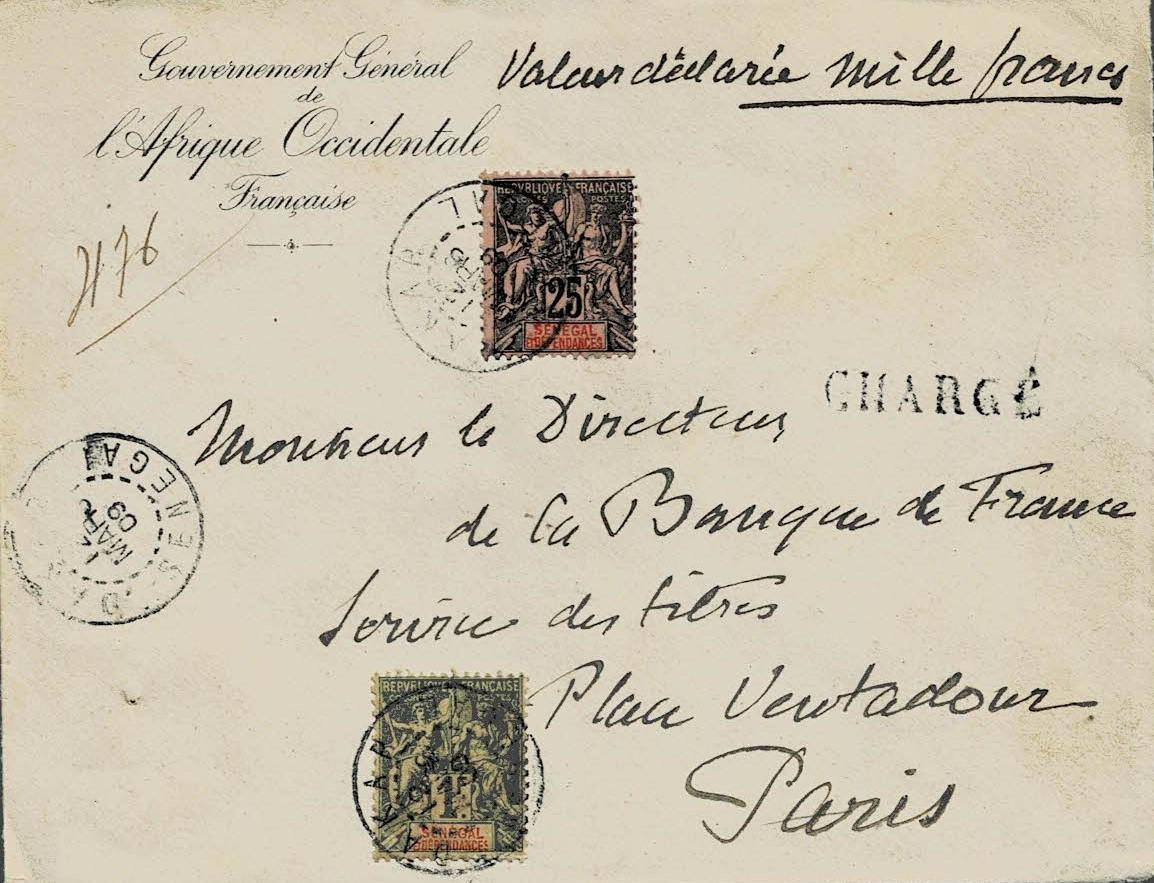 Gouvernement Général
de
l'Afrique Occidentale
Française
Valeur déclarée mille francs
476
REPVBLIQVE FRANÇAISE
POSTES
25
SÉNÉGAL
ET DÉPENDANCES
CHARGÉ
Monsieur le Directeur
de la Banque de France
Service des titres
Place Ventadour
Paris
SENEGAL
MARS
09
REPVBLIQVE FRANÇAISE
1F.
SÉNÉGAL
ET DÉPENDANCES
DAKAR